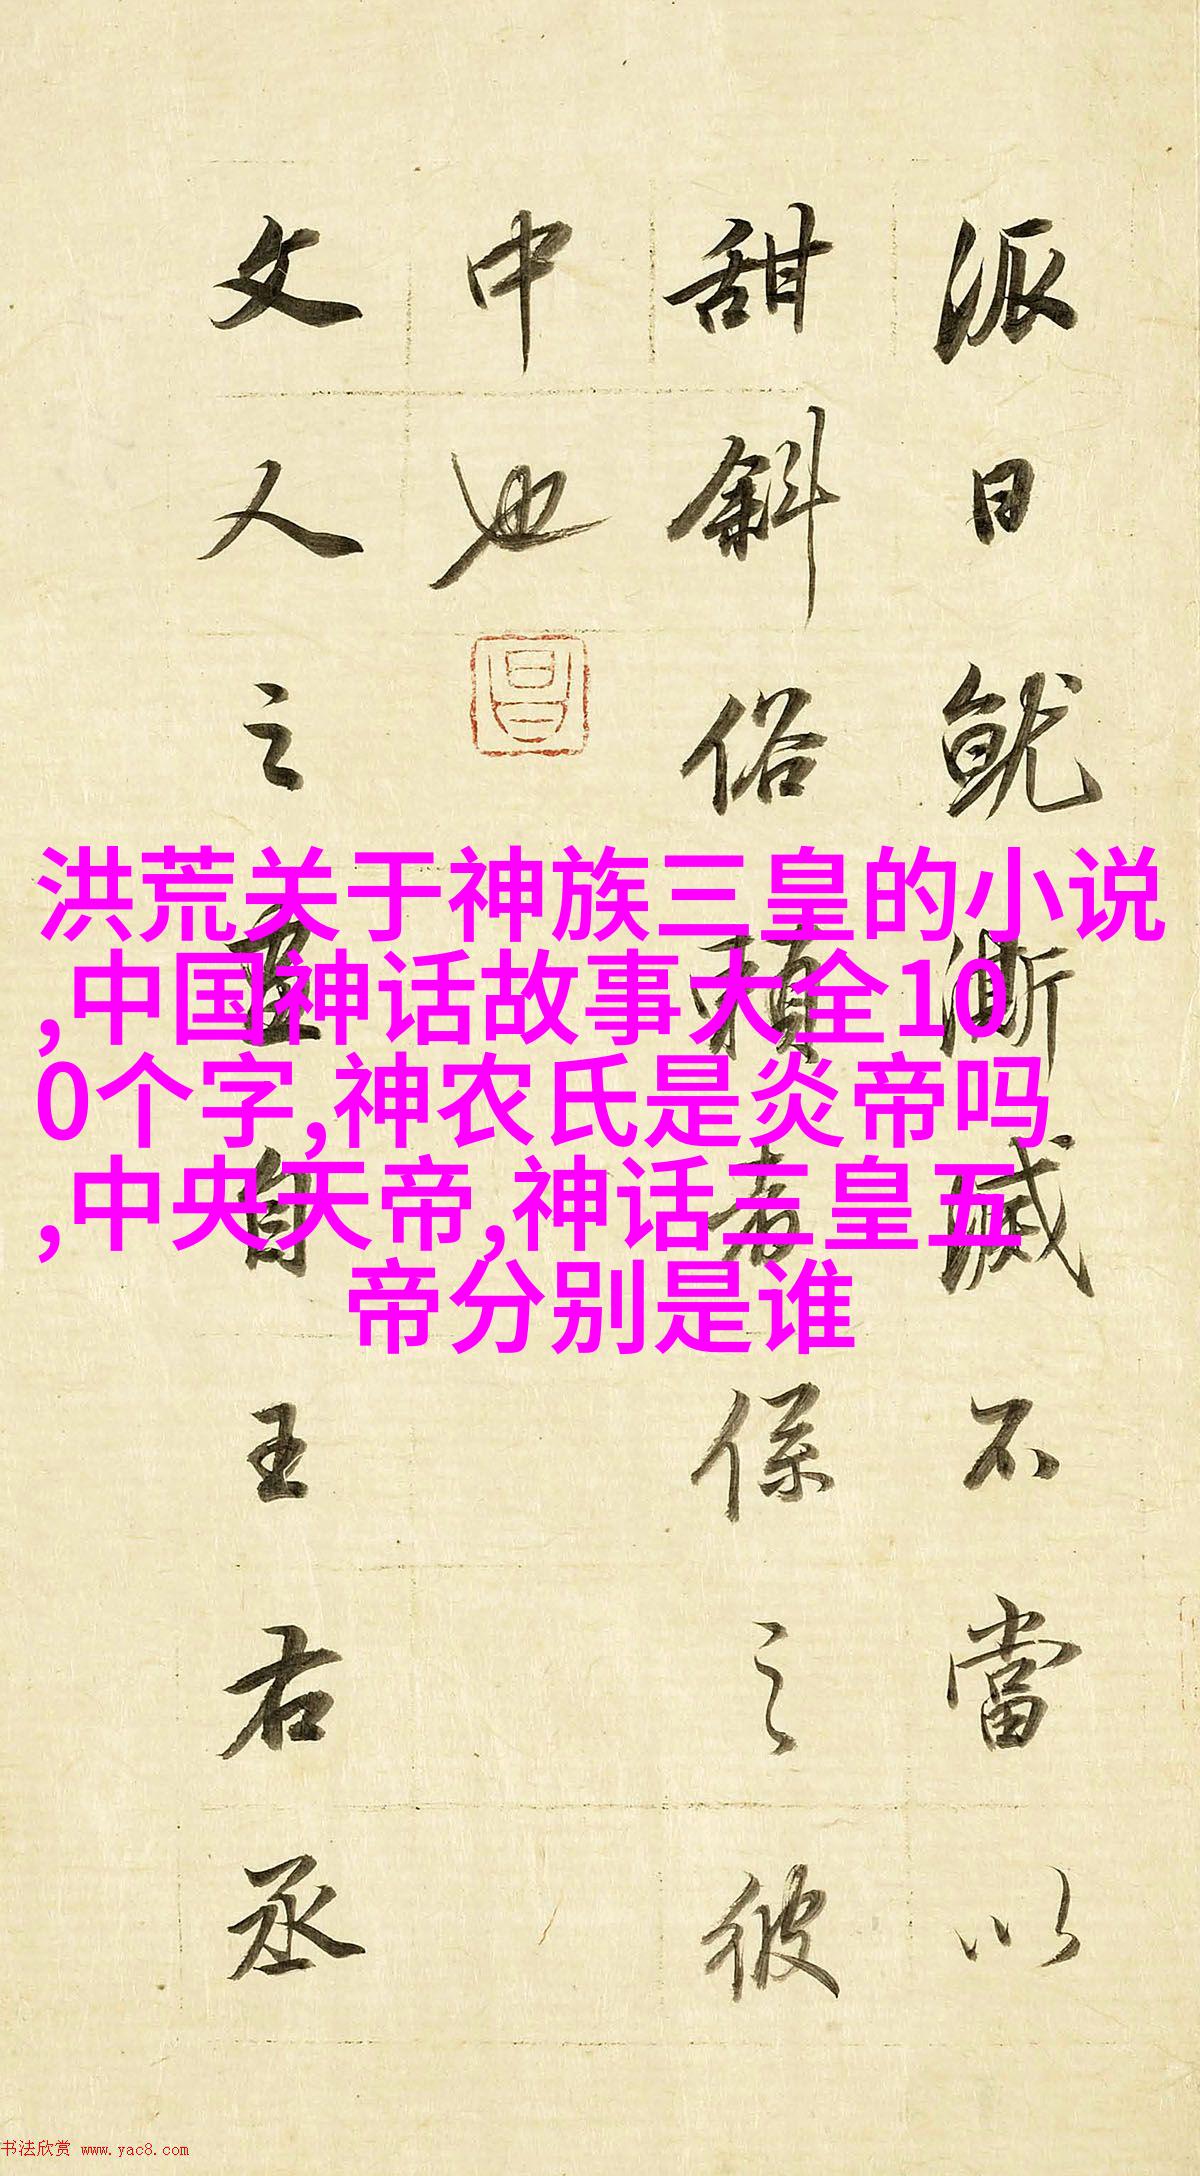 派日就澌滅不當以
甜斜俗賴者係之彼
中也
文人之畫自王右丞
洪荒关于神族三皇的小说
,中国神话故事大全10
0个字,神农氏是炎帝吗
,中央天帝,神话三皇五
帝分别是谁
书法欣赏 www.yac8.com